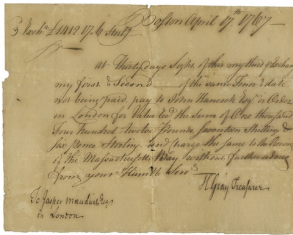 Exch. £1412.17.6 Sterlg Boston April 17th 1767
At Thirty days Sight of this my third Exchange
my first & Second of the same Tenor & date
not being paid, pay to John Hancock Esqr or Order
in London for Value rec'd the Sum of One thousand
four hundred twelve Pounds Seventeen Shilling &
Six pence Sterling and charge the same to the
of the Massachusetts Bay without further advice
from your Humble Servt
H Gray Treasurer
To Jasper Mauduit Esqr
in London